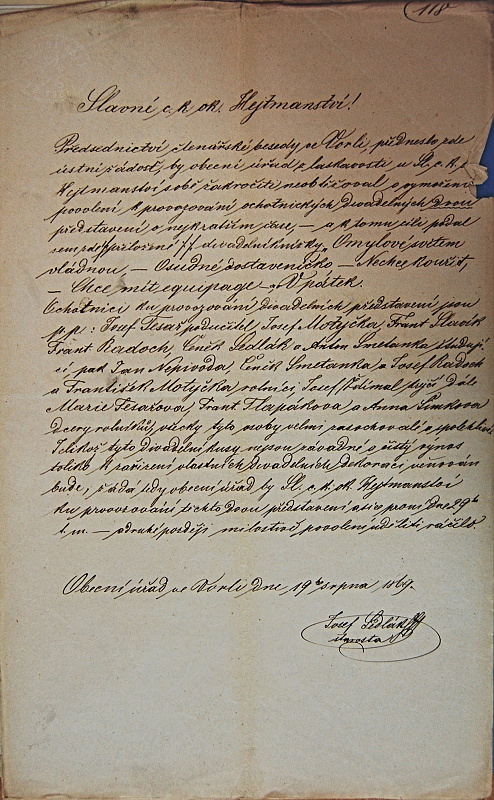 118
Slavné c. k. ok. Hejtmanství!
Předsednictví čtenářské besedy ve Vorli, předneslo zde
ústní žádost, by obecní úřad z laskavosti u Sl. c. k.
Hejtmanství sobě zakročiti neobtěžoval o vymožení
povolení k provozování ochotnických divadelných dvou
představení v nejkratším čase, – a k tomu cíli podal
sem zde přiložené divadelní knížky „Omylové světem
vládnou, – Osudné dostaveníčko – Nechce kouřit,
– Chce mít equipage – V pátek.
Ochotníci ku provozování divadelních představení jsou
p. p.: Josef Tesař poduičitel, Josef Motyčka, Frant. Slavík
Frant. Radoch, Čeněk Sedlák a Anton Smetanka študují-
cí pak Jan Nepivoda, Čeněk Smetanka a Josef Radoch
a František Motyčka, rolníci, Josef dále
Marie Tesařova, Frant. Tlapákova a Anna Šimkova
dcery rolníků, všecky tyto osoby velmi zachovalé a spolehlivé.
Jelikož tyto divadelní kusy nejsou závadné a čistý výnos
toliko k zařízení vlastních divadelních dekorací věnován
bude, žádá tedy obecní úřad by Sl. c. k. ok. Hejtmanství
ku provozování těchto dvou představení a sice první dne 29ho
t. m. – a druhé později milostivé povolení uděliti ráčilo.
Obecní úřad ve Vorli dne 19ho srpna 1869.
Josef Sedlák
starosta